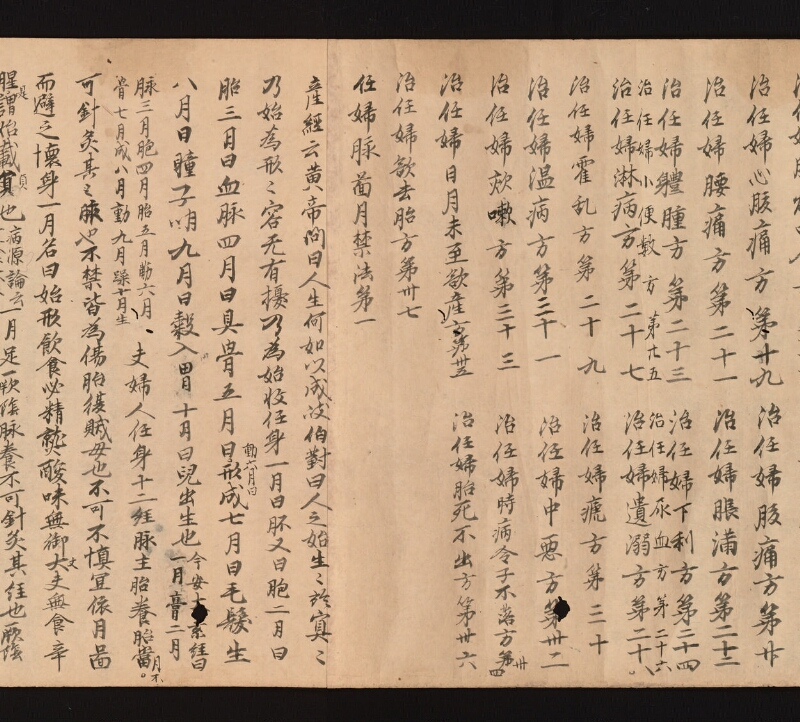 治任婦心腹痛方第十九 治任婦腹痛方第廿
治任婦腰痛方第二十一 治任婦脹滿方第二十二
治任婦體腫方第二十三 治任婦下利方第二十四
治任婦小便數方第廿五 治任婦尿血方第二十六
治任婦淋病方第二十七 治任婦遺溺方第二十八
治任婦霍乱方第二十九 治任婦瘧方第三十
治任婦温病方第三十一 治任婦中惡方第卅二
治任婦咳嗽方第三十三 治任婦時病令子不落方第卅四
治任婦日月未至欲産方第卅五 治任婦胎死不出方第卅六
治任婦欲去胎方第卅七
任婦脉圖月禁法第一
産經云黄帝問曰人生何如以成岐伯對曰人之始生々於冥々
乃始為形々容无有擾乃為始收任身一月曰胚又曰胞二月曰
胎三月曰血脉四月曰具骨五月曰動六月曰形成七月曰毛髮生
八月曰瞳子明九月曰穀入胃十月曰兒出生也今安太素經曰一月膏二月
脉三月胞四月胎五月動六月骨七月成八月動九月躁十月生 夫婦人任身十二經脉主胎養胎當月不
可針灸其々脉也不禁皆為傷胎復賊母也不可不慎宜依月圖
而避之懷身一月名曰始形飲食必精熟酸味無御大丈夫無食辛
腥是謂始載貞也病源論云一月足厥陰脉養不可針灸其經也厥陰